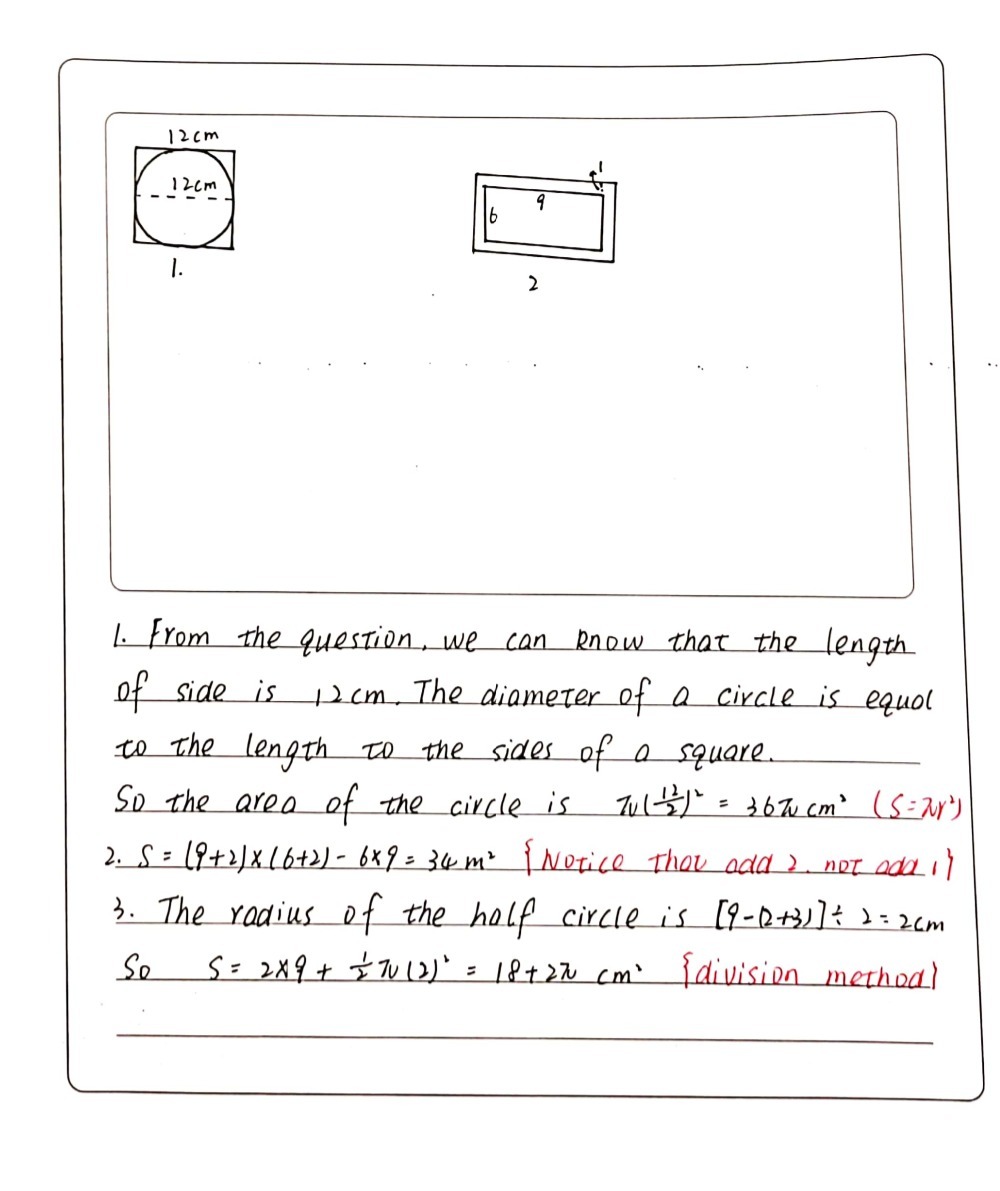 12cm
12cm
1.
1
9
6
2
1. From the question, we can know that the length
of side is 12cm. The diameter of a circle is equal
to the length to the sides of a square.
So the area of the circle is π(12/2)² = 36π cm² (S=πr²)
2. S = (9+2)×(6+2) - 6×9 = 34 m² {Notice that add 2. not add 1}
3. The radius of the half circle is [9-(2+3)]÷2=2cm
So S = 2×9 + 1/2 π(2)² = 18+2π cm² {division method}